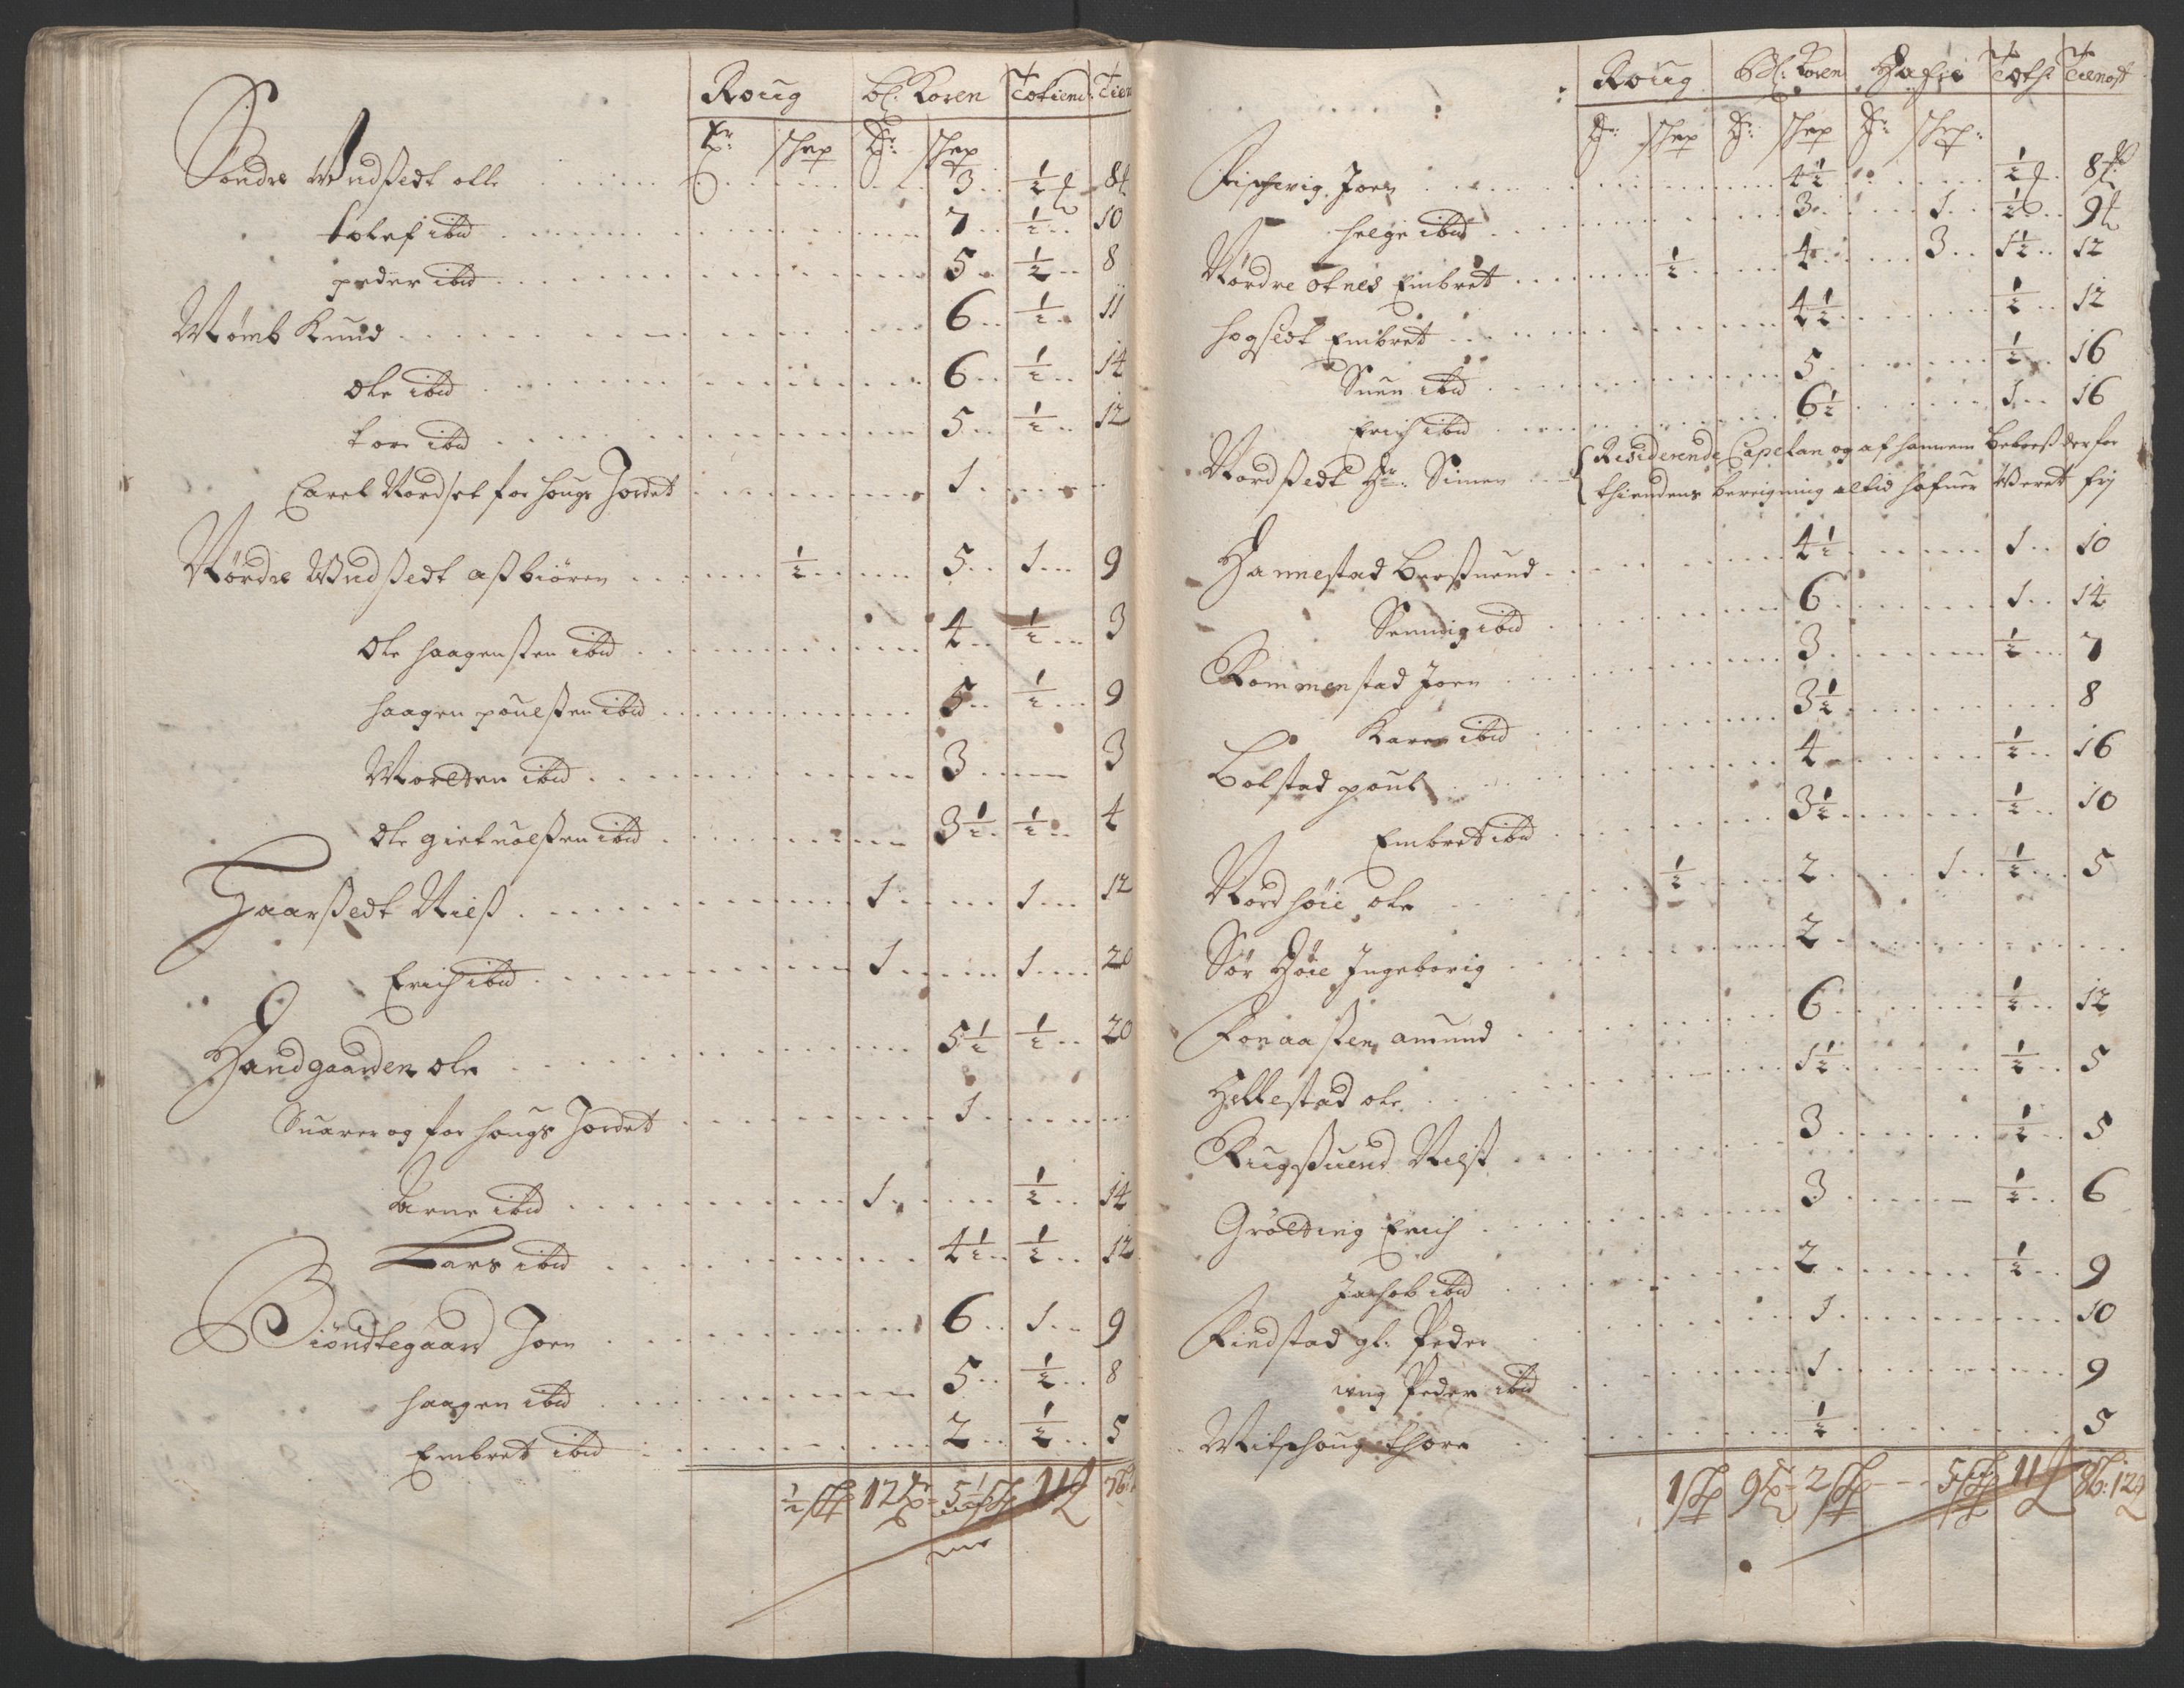 Roug Bl. Koren Qotiend Tien
Tr: Schep Tr: Schep
Søndre Undset olle 3 ½ 8
tolef ibid 7 ½ 10
peder ibid 5 ½ 8
Momb Knud 6 ½ 11
Ole ibid 6 ½ 14
tore ibid 5 ½ 12
Carel Nordset for hougs Jordet 1
Nørdre Undsedt aßbiören ½ 5 1 9
Ole haagensten ibid 4 ½ 3
haagen poulsten ibid 5 ½ 9
Morten ibid 3 3
Ole gietuolsten ibid 3½ ½ 4
Haarsedt Nielß 1 1 12
Erich ibid 1 1 20
Handgaarden ole 5½ ½ 20
Suarer og for hougs Jordet 1
Arne ibid 1 ½ 14
Lars ibid 4½ ½ 12
Biøndtegaard Joen 6 1 9
haagen ibid 5 ½ 8
Embret ibid 2 ½ 5
½ Shp 12 Tr 5½ Shp 11 76
Roug Bl: Koren Hafre Qotht Tienost
Tr: Schep Tr: Schep Tr: Schep:
Fischvig Joen 4½ ½ 8
helge ibid 3 1 ½ 9
Nørdre otnes Embret ½ 4 3 1½ 12
hogsedt Embret 4½ ½ 12
Suen ibid 5 ½ 16
Erich ibid 6½ 1 16
Nordsedt Hr: Simen Residerende Capelan og af hannem beboest derfor
thiendens bereigning altid hafuer Veret frj
Hannestad Berßuend 4½ 1 10
Semmig ibid 6 1 14
Rommenstad Joen 3 ½ 7
Karen ibid 3½ 8
Bolstad poul 4 ½ 16
Embret ibid 3½ ½ 10
Nordhøie ole ½ 2 1 ½ 5
Sør Høie Ingeborig 2
Fonaasten amund 6 ½ 12
Hellestad ole 1½ ½ 5
Rugsuend Nielst 3 ½ 5
Grøtting Erich 3 ½ 6
Jachob ibid 2 ½ 9
Findstad gl: Peder 1 10
ung Peder ibid 1 9
Mitschoug thore ½ 5
1 Shp 9 Tr 2 Shp 5 Shp 11 8 12